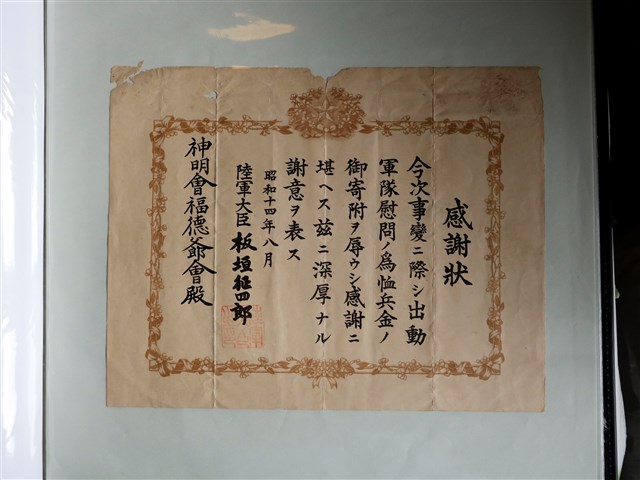 感謝狀
今次事變ニ際シ出動
軍隊慰問ノ爲恤兵金ノ
御寄附ヲ辱ウシ感謝ニ
堪ヘス茲ニ深厚ナル
謝意ヲ表ス
昭和十四年八月
陸軍大臣 板垣征四郎
神明會福德爺會殿